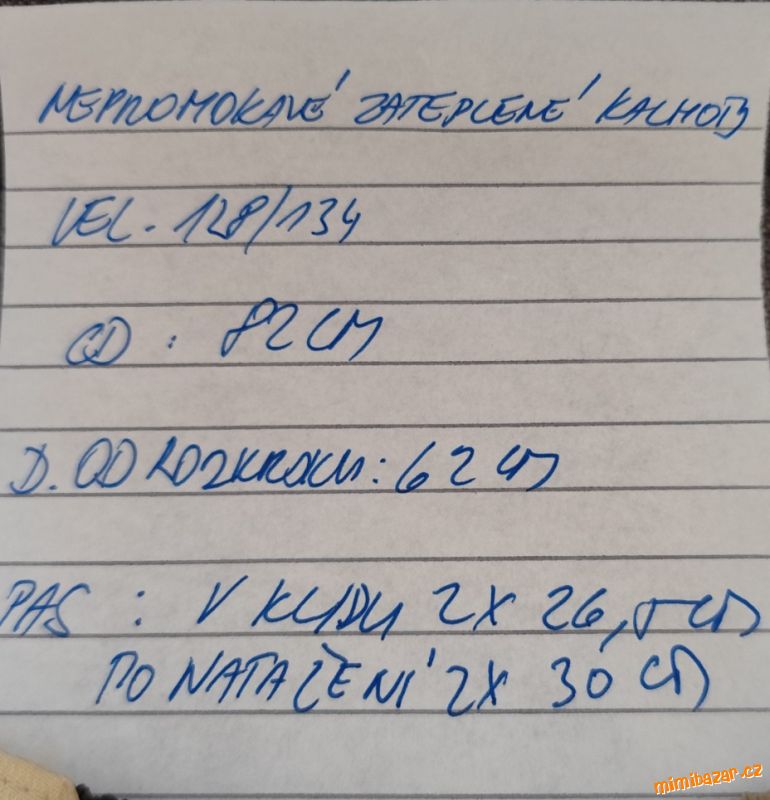 NEPROMOKAVÉ ZATEPLENÉ KALHOTY
VEL. 128/134
CD : 82 CM
D. OD ROZKROKU: 62 CM
PAS : V KLIDU 2X 26,5 CM
PO NATAŽENÍ 2X 30 CM
mimibazar.cz